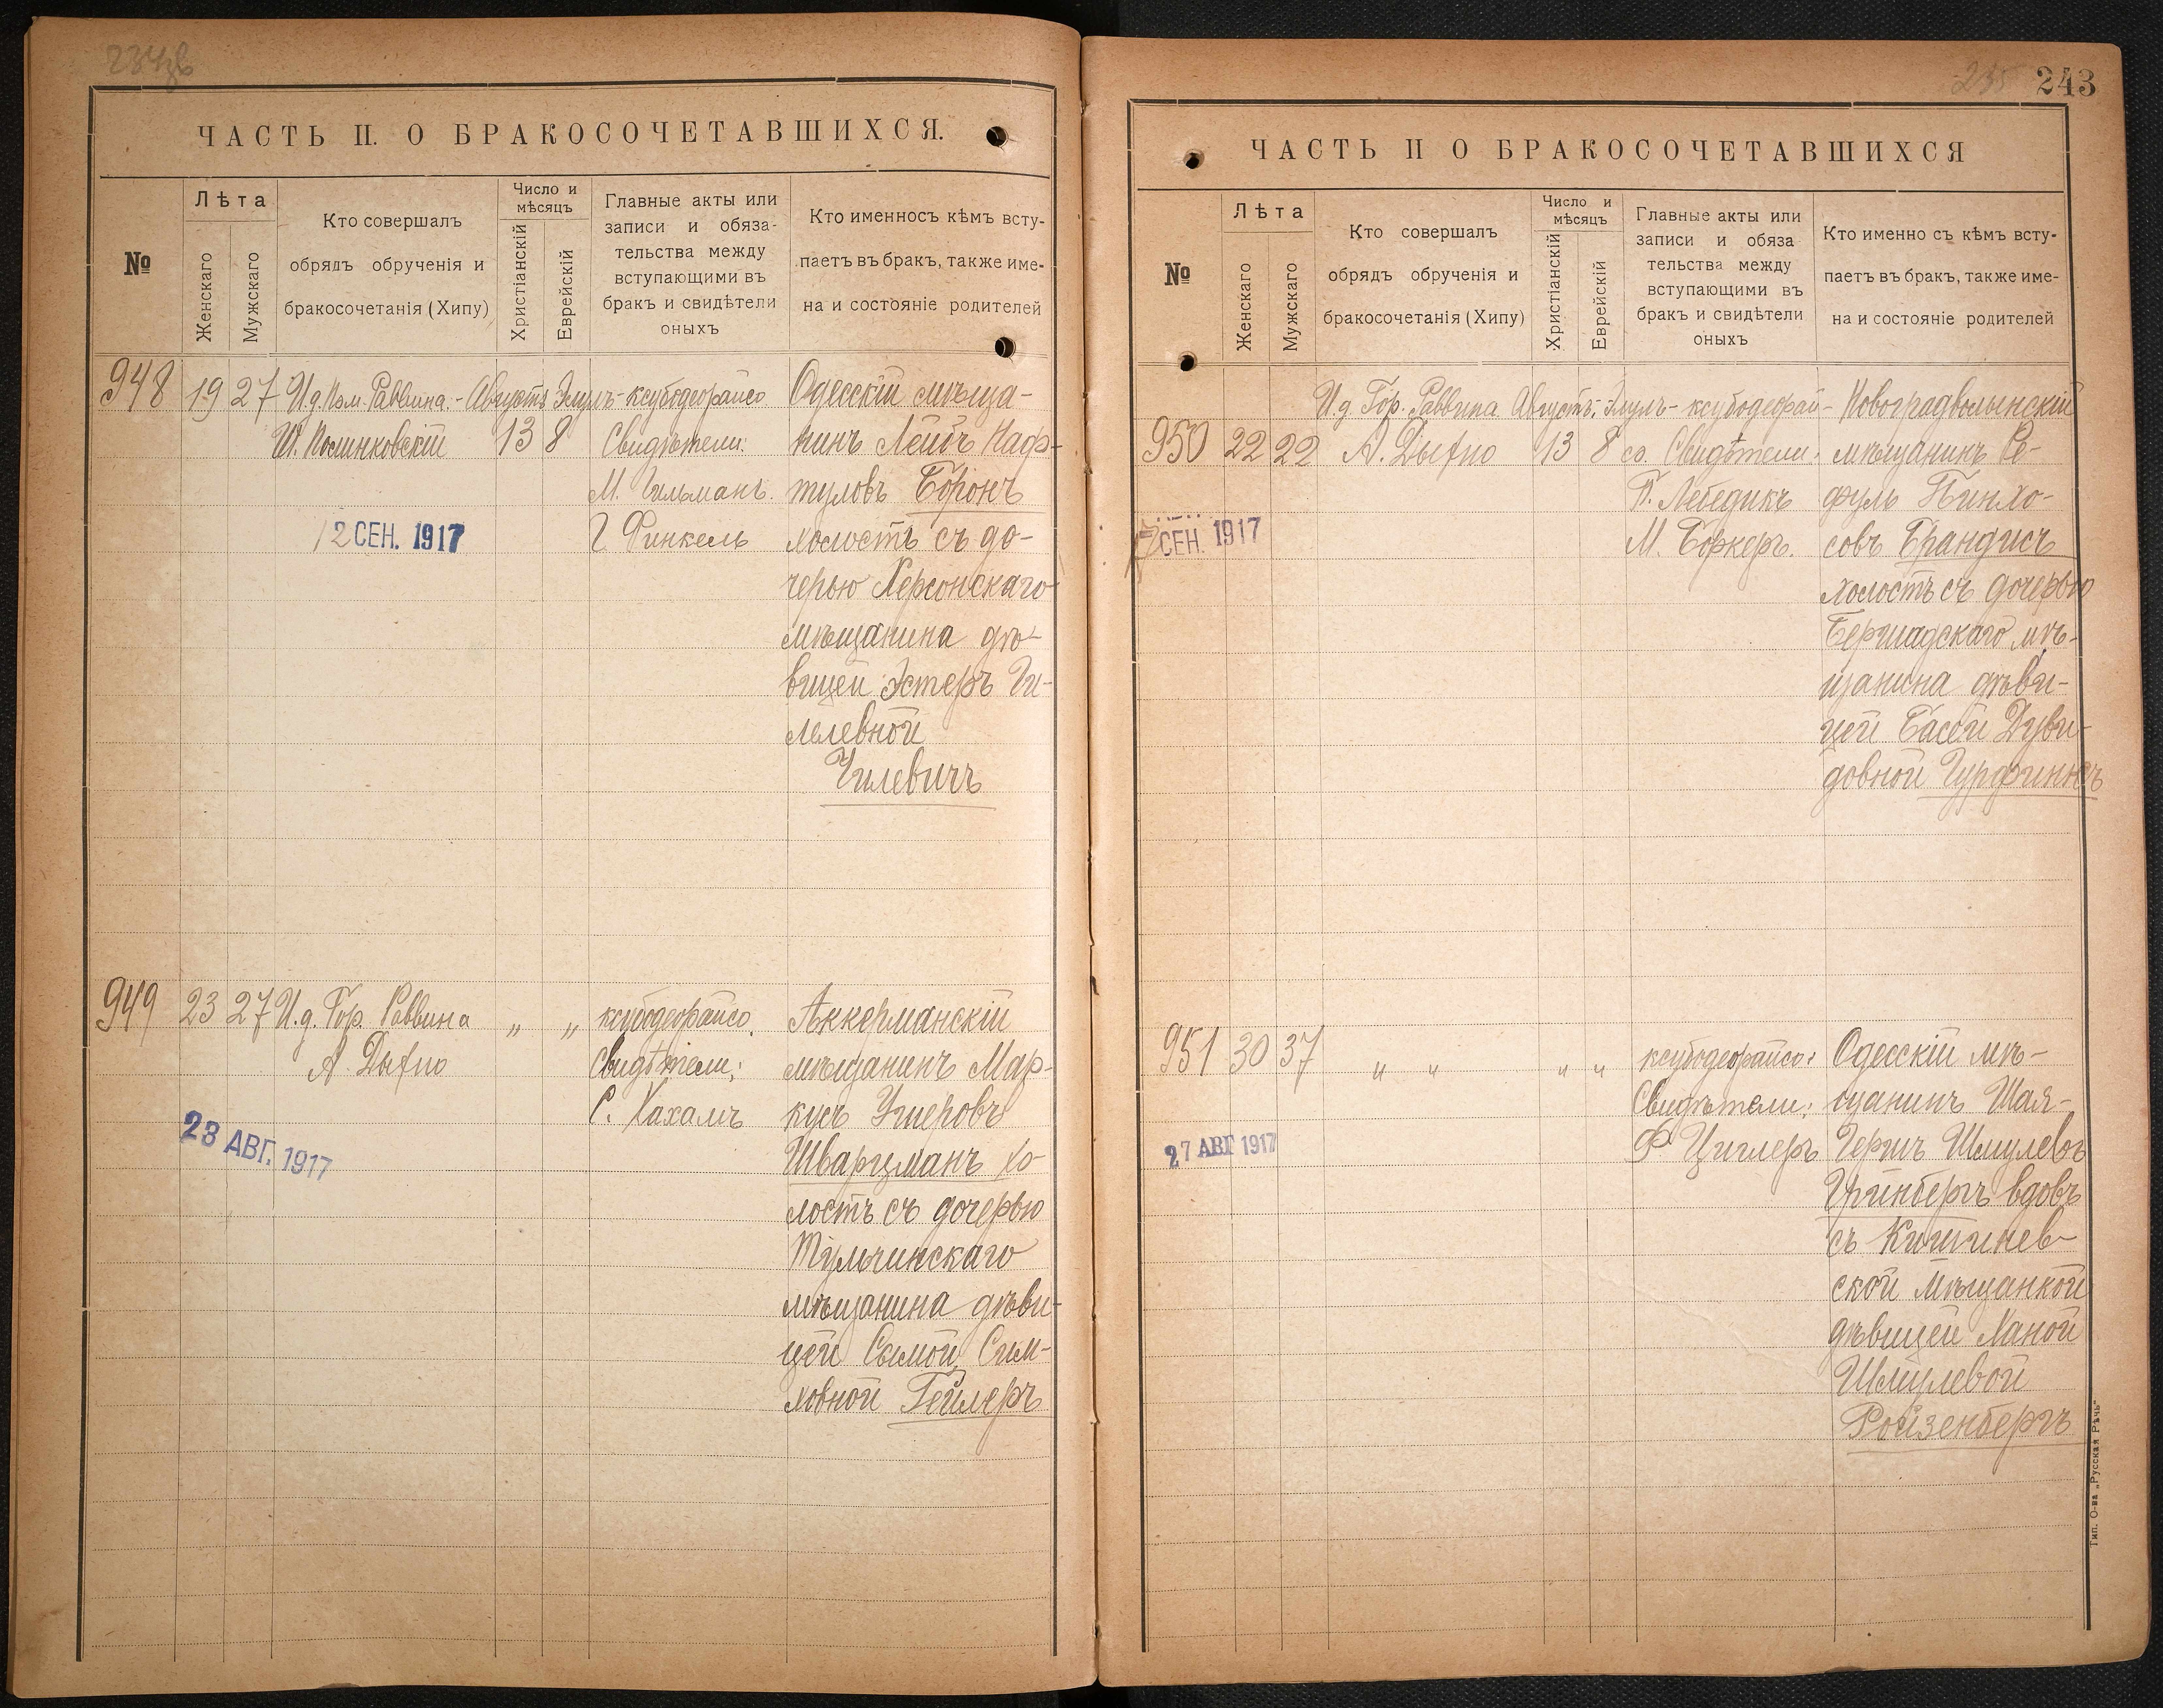 ЧАСТЬ II. О БРАКОСОЧЕТАВШИХСЯ.
№
Лѣта
Женскаго
Мужскаго
Кто совершалъ
обрядъ обрученія и
бракосочетанія (Хипу)
Число и
мѣсяцъ
Христіанскій
Еврейскій
Главные акты или
записи и обяза-
тельства между
вступающими въ
бракъ и свидѣтели
оныхъ
Кто именносъ кѣмъ всту-
паетъ въ бракъ, также име-
на и состояніе родителей
948 19 27 И.д. Пом. Раввина.- Августъ Элулъ- ксубодеорайсо
Ш. Полинковскій 13 8 Свидѣтели:
М. Гильманъ.
Г. Финкель
12 СЕН. 1917
Одесскій мѣща-
нинъ Лейбъ Наф-
туловъ Боронъ
холостъ съ до-
черью Херсонскаго
мѣщанина дѣ-
вицей Эстеръ Ги-
лелевной
Гилевичъ
949 23 27 И.д. Гор. Раввина „ „ ксубодеорайсо.
А. Дыхно Свидѣтели:
С. Хахамъ
23 АВГ. 1917
Аккерманскій
мѣщанинъ Мар-
кусъ Ушеровъ
Шварцманъ хо-
лостъ съ дочерью
Тульчинскаго
мѣщанина дѣви-
цей Симой Сим-
ховной Гейлеръ
235 243
ЧАСТЬ II О БРАКОСОЧЕТАВШИХСЯ
№
Лѣта
Женскаго
Мужскаго
Кто совершалъ
обрядъ обрученія и
бракосочетанія (Хипу)
Число и
мѣсяцъ
Христіанскій
Еврейскій
Главные акты или
записи и обяза
тельства между
вступающими въ
бракъ и свидѣтели
оныхъ
Кто именно съ кѣмъ всту-
паетъ въ бракъ, также име-
на и состояніе родителей
И.д. Гор. Раввина Августъ; Элулъ- ксубодеорай-
950 22 22 А. Дыхно 13 8 со. Свидѣтели:
Б. Лебедикъ
М. Боркеръ.
СЕН. 1917
Новоградволынскій
мѣщанинъ Ре-
фуль Пинхо-
совъ Брандисъ
холостъ съ дочерью
Бершадскаго мѣ-
щанина дѣви-
цей Басей Дуви-
довной Гурфинкъ
951 30 37 „ „ „ „ ксубодеорайсо:
Свидѣтели:
Ф. Циглеръ
27 АВГ 1917
Одесскій мѣ-
щанинъ Шая-
Гершъ Шмулевъ
Гринбергъ вдовъ
съ Кишинев-
ской мѣщанкой
дѣвицей Ханой
Шмулевой
Ройзенбергъ
Тип. О-ва „Русская Рѣчь“